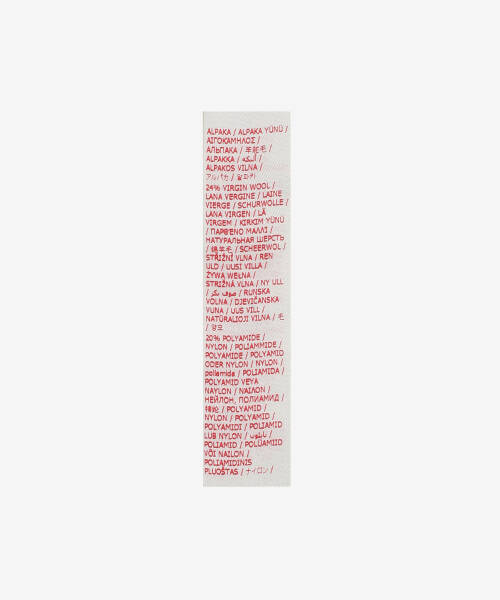 ALPAKA / ALPAKA YÜNÜ /
ΑΙΓΟΚΑΜΗΛΟΣ /
АЛЬПАКА / 羊驼毛 /
ALPAKKA / ألبكة /
ALPAKOS VILNA /
アルパカ / 알파카
24% VIRGIN WOOL /
LANA VERGINE / LAINE
VIERGE / SCHURWOLLE /
LANA VIRGEN / LÃ
VIRGEM / KIRKIM YÜNÜ
/ ΠΑΡΘΕΝΟ ΜΑΛΛΙ /
НАТУРАЛЬНАЯ ШЕРСТЬ
/ 绵羊毛 / SCHEERWOL /
STŘIŽNÍ VLNA / REN
ULD / UUSI VILLA /
ŻYWA WEŁNA /
STRIŽNÁ VLNA / NY ULL
/ صوف بكر / RUNSKA
VOLNA / DJEVIČANSKA
VUNA / UUS VILL /
NATŪRALIOJI VILNA / 毛
/ 양모
20% POLYAMIDE /
NYLON / POLIAMMIDE /
POLYAMIDE / POLYAMID
ODER NYLON / NYLON /
poliamida / POLIAMIDA /
POLYAMID VEYA
NAYLON / ΝΑΙΛΟΝ /
НЕЙЛОН, ПОЛИАМИД /
锦纶 / POLYAMID /
NYLON / POLYAMID /
POLYAMIDI / POLIAMID
LUB NYLON / نايلون /
POLIAMID / POLÜAMIID
VÕI NAILON /
POLIAMIDINIS
PLUOŠTAS / ナイロン /